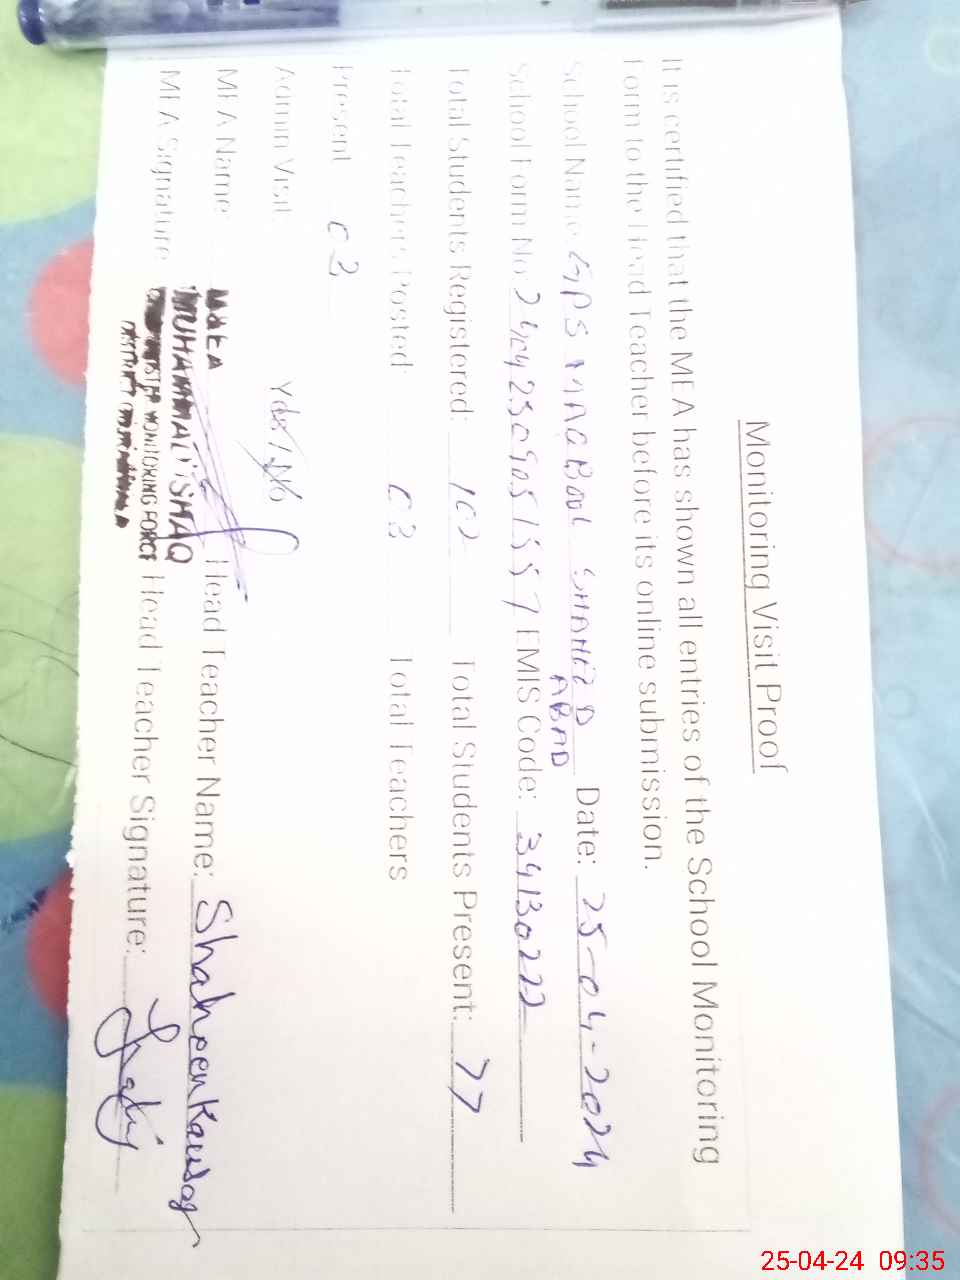 Monitoring Visit Proof
It is certified that the MEA has shown all entries of the School Monitoring
Form to the Head Teacher before its online submission.
School Name GPS MAQBOOL SHAHEED Date: 25-04-2024
ABAD
School Form No EMIS Code: 34130222
Total Students Registered: 102 Total Students Present: 77
Total Teachers Posted: 03 Total Teachers
Present 03
Admin Visit Yes / No
MEA Name M&EA Head Teacher Name: Shaheen Kausar
MUHAMMAD ISHAQ
MEA Signature MONITORING FORCE Head Teacher Signature:
DISTRICT
25-04-24 09:35